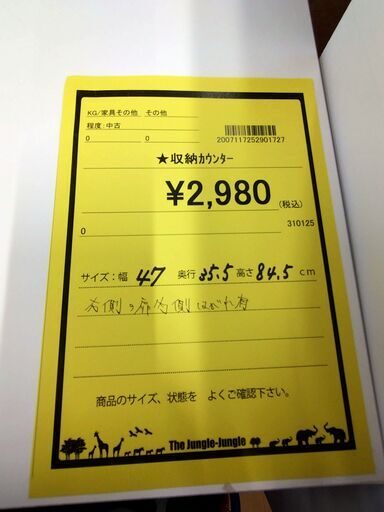 KG/家具その他 その他
程度:中古
0 0
2007117252901727
★収納カウンター
¥2,980(税込)
0 310125
サイズ:幅 47 奥行 35.5 高さ 84.5 cm
右側の扉内側はがれ有
商品のサイズ、状態を よくご確認下さい。
The Jungle-Jungle